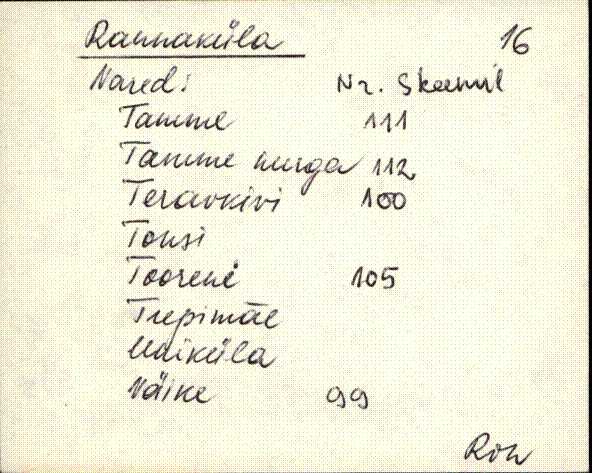 Rannaküla 16
Nared: Nr. Skeemil
Tamme 111
Tamme nurga 112
Teravkivi 100
Tonsi
Toorene 105
Trepimäe
Uuiküla
Väike 99
Roh